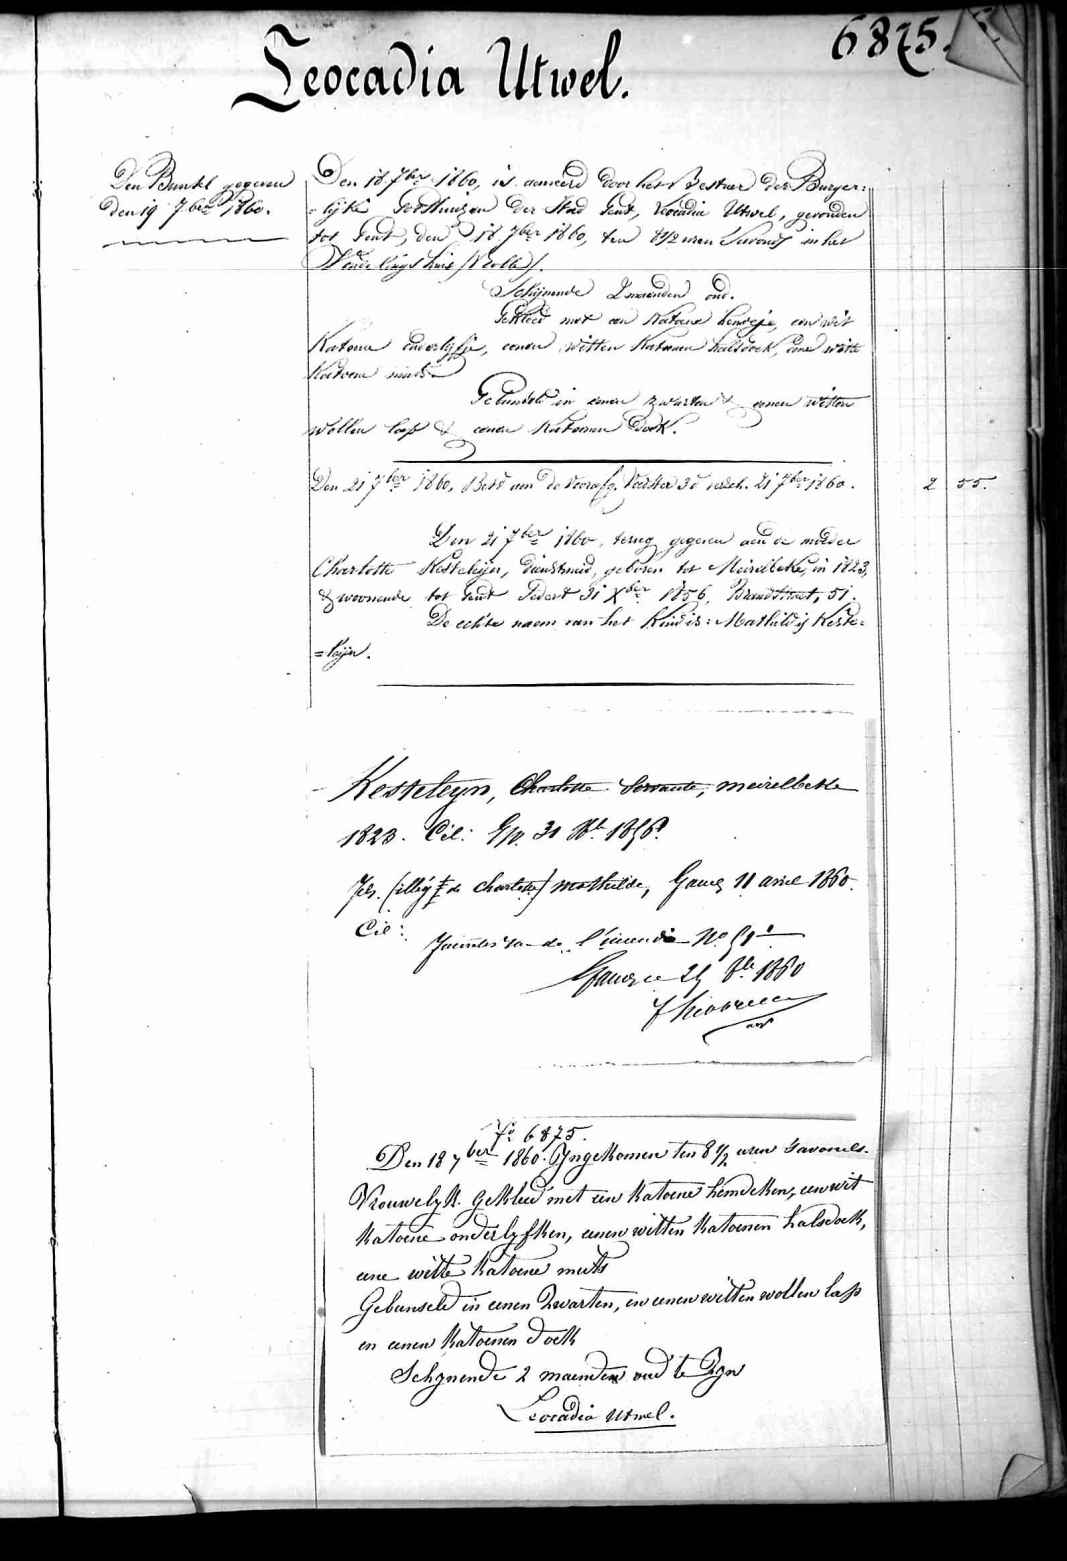 6875.
Leocadia Utwel.
Den Bunkl gegeven
den 19 7ber 1860.
Den 18 7ber 1860, is aenveerd door het Bestuer der Burger=
=lijke Godshuizen der Stad Gent, Leocadia Utwel, gevonden
tot Gent, den 18 7ber 1860, ten 8 1/2 uren 's avonds in het
Vondelings huis
Schijnende 2 maanden oud.
Gekleed met een Katoene hemdeje, een wit
Katoene onderlyfje, eenen witten Katoenen halsdoek, eene witte
Katoene muts
Gebunseld in eenen zwarten & eenen witten
wollen lap & eenen Katoenen doek.
Den 21 7ber 1860, aen de 21 7ber 1860. 2 55.
Den 21 7ber 1860, terug gegeven aen de moeder
Charlotte Kesteleijn, dienstmeid, geboren tot Meirelbeke, in 1823,
& woonende tot Gent Sedert 31 Xber 1856, Brandstraat, 51.
De echte naem van het Kind is: Mathildis Keste=
=leijn.
Kesteleyn, Charlotte Servante, meirelbeke
1823. Cél: 31 1856.
(illég. de Charlotte) Mathilde, Gand 11 avril 1860.
Cél:
de l'incendie No 51
Gand ce 21 1860
Fo 6875.
Den 18 7ber 1860. Yngekomen ten 8 1/2 uren savonds.
Vrouwelyk. Gekleed met een Katoene hemdeken, een wit
Katoene onderlyfken, eenen witten Katoenen halsdoek,
eene witte Katoene muts
Gebunseld in eenen Zwarten, en eenen witten wollen lap
en eenen Katoenen doek
Schynende 2 maenden oud te Zyn
Leocadia Utwel.